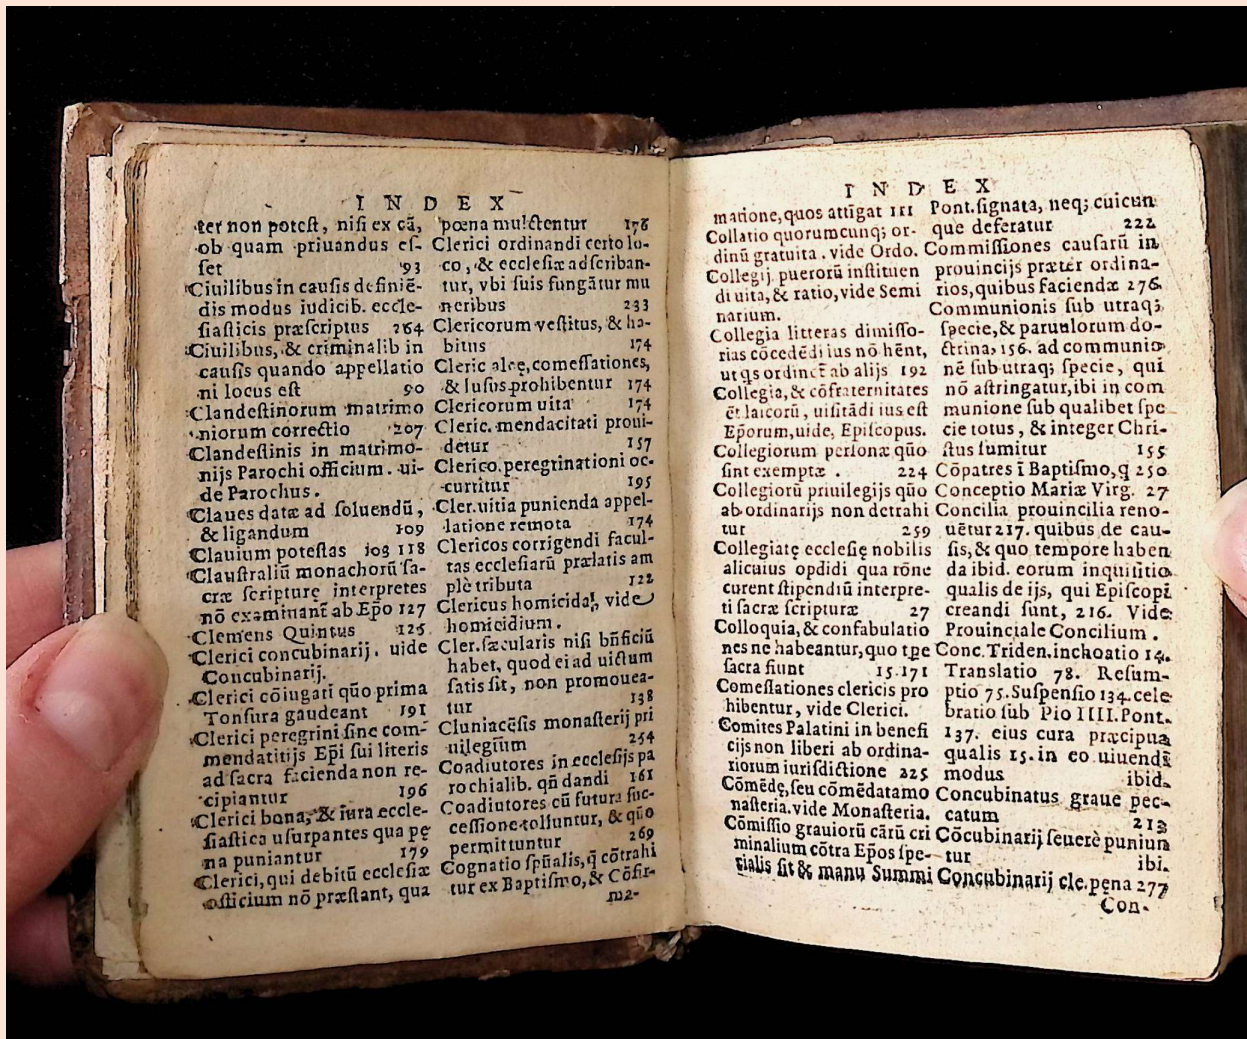 INDEX
ter non potest, nisi ex cã,
ob quam priuandus es-
set 93
Ciuilibus in causis definiē-
dis modus iudicib. eccle-
siasticis præscriptus 264
Ciuilibus, & criminalib in
causis quando appellatio
ni locus est 90
Clandestinorum matrimo
niorum correctio 207
Clandestinis in matrimo-
nijs Parochi officium. ui-
de Parochus.
Claues datæ ad soluendũ,
& ligandum 109
Clauium potestas 108 118
Claustraliũ monachorũ sa-
cræ scripturę interpretes
nõ examinant̃ ab Ep̃o 127
Clemens Quintus 125
Clerici concubinarij. uide
Concubinarij.
Clerici cõiugati qũo prima
Tonsura gaudeant 191
Clerici peregrini sine com-
mendatitijs Ep̃i sui literis
ad sacra facienda non re-
cipiantur 196
Clerici bona, & iura eccle-
siastica usurpantes qua pę
na puniantur 179
Clerici, qui debitũ ecclesiæ
officium nõ præstant, qua
pœna mulctentur 178
Clerici ordinandi certo lo-
co, & ecclesiæ adscriban-
tur, vbi suis fungãtur mu
neribus 233
Clericorum vestitus, & ha-
bitus 174
Cleric alcę, comessationes,
& lusus prohibentur 174
Clericorum uita 174
Cleric. mendacitati proui-
detur 157
Clerico. peregrinationi oc-
curritur 195
Cler. uitia punienda appel-
latione remota 174
Clericos corrigendi facul-
tas ecclesiarũ prælatis am
plè tributa 122
Clericus homicida, vide
homicidium.
Cler. sæcularis nisi bñficiũ
habet, quod ei ad uictum
satis sit, non promouea-
tur 138
Cluniacẽsis monasterij pri
uilegium 254
Coadiutores in ecclesijs pa
rochialib. qñ dandi 161
Coadiutores cũ futura suc-
cessione tolluntur, & qũo
permittuntur 269
Cognatio sp̃ualis, q̃ cõtrahi
tur ex Baptismo, & Cõfir-
ma-
INDEX
matione, quos attigat 111
Collatio quorumcunq; or-
dinũ gratuita. vide Ordo.
Collegij puerorũ instituen
di uita, & ratio, vide Semi
narium.
Collegia litteras dimisso-
rias cõcedẽdi ius nõ hẽnt,
ut qs ordinet̃ ab alijs 192
Collegia, & cõfraternitates
et̃ laicorũ, uisitãdi ius est
Ep̃orum, uide, Episcopus.
Collegiorum personæ qũo
sint exemptæ. 224
Collegiorũ priuilegijs qũo
ab ordinarijs non detrahi
tur 259
Collegiatę ecclesię nobilis
alicuius opdidi qua rõne
curent stipendiũ interpre-
ti sacræ scripturæ 27
Colloquia, & confabulatio
nes ne habeantur, quo tp̃e
sacra fiunt 15.171
Comessationes clericis pro
hibentur, vide Clerici.
Comites Palatini in benefi
cijs non liberi ab ordina-
riorum iurisdictione 225
Cõmẽdę, seu cõmẽdatamo
nasteria. vide Monasteria.
Cõmissio grauiorũ cãrũ cri
minalium cõtra Ep̃os spe-
cialis sit & manu Summi
Pont. signata, neq; cuicun
que deferatur 222
Commissiones causarũ in
prouincijs præter ordina-
rios, quibus faciendæ 276.
Communionis sub utraq;
specie, & paruulorum do-
ctrina, 156. ad communio
nẽ sub utraq; specie, qui
nõ astringatur, ibi in com
munione sub qualibet spe
cie totus, & integer Chri-
stus sumitur 155
Cõpatres ĩ Baptismo, q 250
Conceptio Mariæ Virg. 27
Concilia prouincilia reno-
uẽtur 217. quibus de cau-
sis, & quo tempore haben
da ibid. eorum inquisitio
qualis de ijs, qui Episcopi
creandi sunt, 216. Vide
Prouinciale Concilium.
Conc. Triden. inchoatio 14.
Translatio 78. Resum-
ptio 75. Suspensio 134. cele
bratio sub Pio IIII. Pont.
137. eius cura præcipua
qualis 15. in eo uiuendi
modus ibid.
Concubinatus graue pec-
catum 213
Cõcubinarij seuerè puniun
tur ibi.
Concubinarij cle. pęna 277
Con-